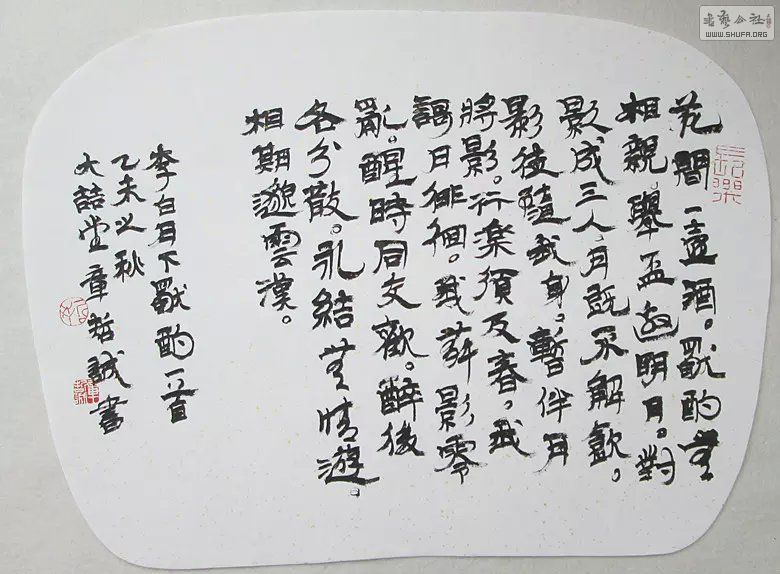 書藝公社
WWW.SHUFA.ORG
長樂
花間一壺酒。獨酌無
相親。舉盃邀明月。對
影成三人。月既不解飲。
影徒隨我身。暫伴月
將影。行楽須及春。我
謌月徘徊。我舞影零
亂。醒時同交歡。醉後
各分散。永結無情遊。
相期邈雲漢。
李白月下獨酌一首
乙未之秋
大喆堂章哲誠書